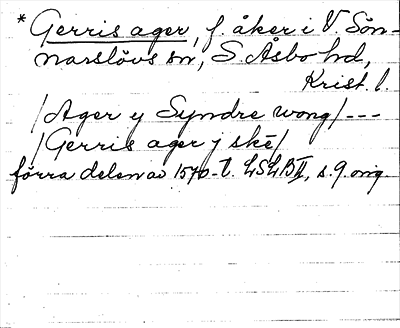 * Gerris ager, f. åker i V. Sön-
narslövs sn, S. Åsbo hd,
Krist. l.
/Ager y Syndre wong/ ---
/Gerris ager j ske/
förra delen av 1570-t. LSLB II, s. 9. orig.